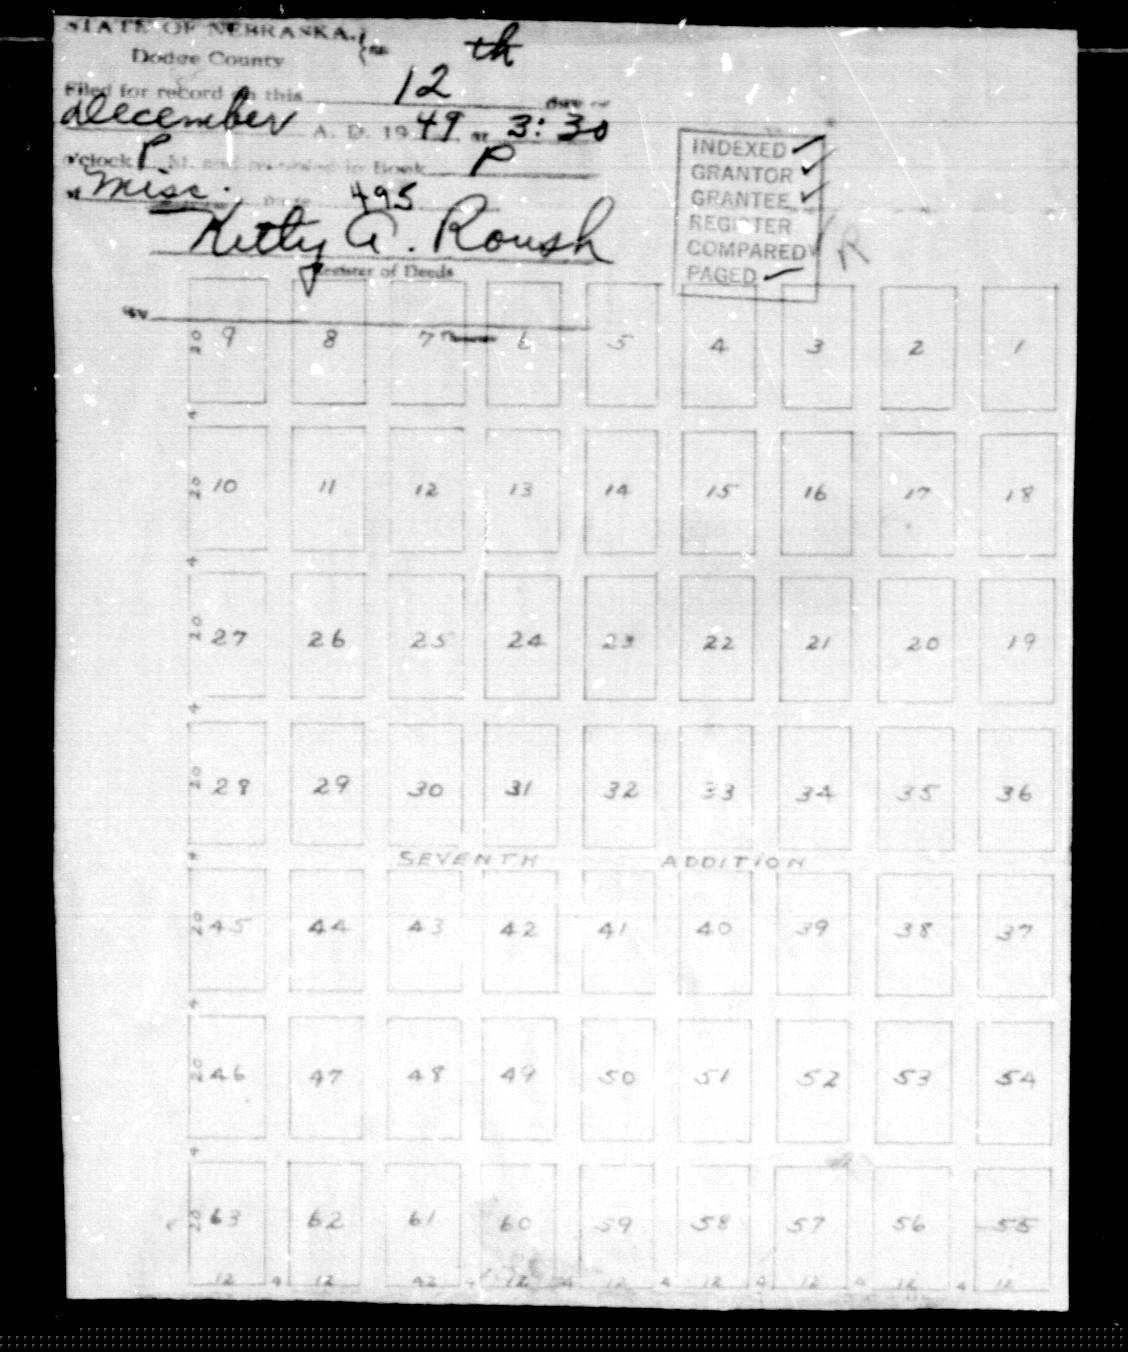 STATE OF NEBRASKA, } ss
Dodge County
Filed for record on this 12th day of
December A. D. 1949 at 3:30
o'clock P. M. and recorded in Book P
of Misc. page 495
Kitty A. Roush
Register of Deeds
By
INDEXED ✓
GRANTOR ✓
GRANTEE ✓
REGISTER
COMPARED ✓
PAGED ✓
R
20 9 8 7 6 5 4 3 2 1
4
20 10 11 12 13 14 15 16 17 18
4
20 27 26 25 24 23 22 21 20 19
4
20 28 29 30 31 32 33 34 35 36
4 SEVENTH ADDITION
20 45 44 43 42 41 40 39 38 37
4
20 46 47 48 49 50 51 52 53 54
4
20 63 62 61 60 59 58 57 56 55
12 4 12 12 4 12 4 12 4 12 4 12 4 12 4 12